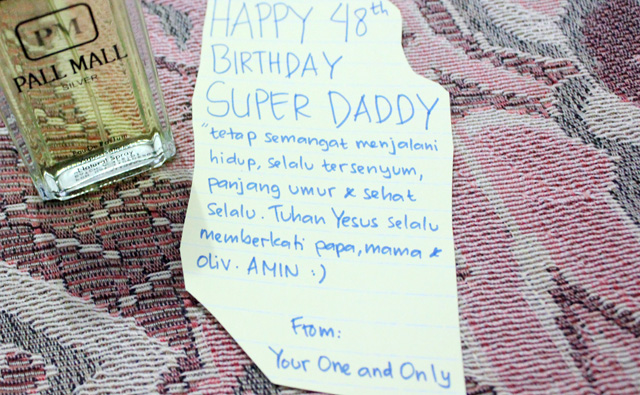 PM
PALL MALL
SILVER
Natural Spray
HAPPY 48th
BIRTHDAY
SUPER DADDY
"tetap semangat menjalani
hidup, selalu tersenyum,
panjang umur & sehat
selalu. Tuhan Yesus selalu
memberkati papa, mama &
oliv. AMIN :)
From:
Your One and Only